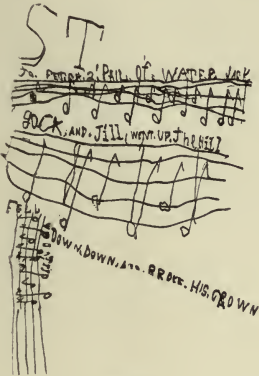 ST
To. FETCH. a. PAIL. OF. WATER. JACK
JOCK, AND. Jill, WENT. UP. The hill
FELL
DOWN, DOWN, AND. BROKE. HIS, CROWN